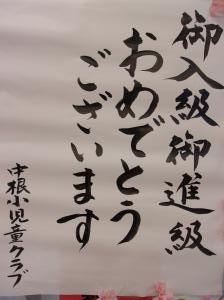 御入級御進級
おめでとう
ございます
中根小児童クラブ